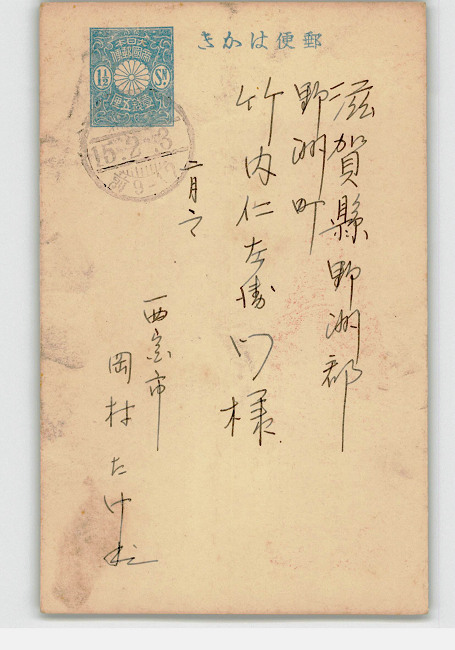 郵便はかき
大日本
帝國郵便
1½
SN
壹銭五厘
15.2.3
滋賀縣野洲郡
野洲町
竹内仁左衛門様
二月
西宮市
岡村たけ